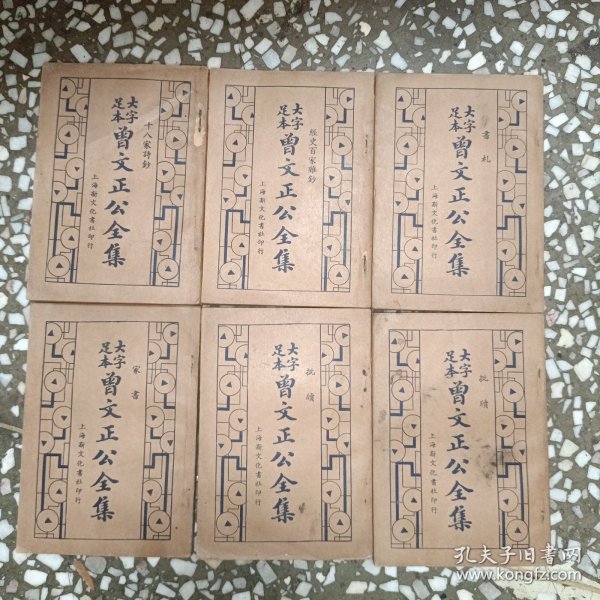 十八家詩鈔
大字
足本
曾文正公全集
上海新文化書社印行
經史百家雜鈔
大字
足本
曾文正公全集
上海新文化書社印行
書札
大字
足本
曾文正公全集
上海新文化書社印行
家書
大字
足本
曾文正公全集
上海新文化書社印行
批牘
大字
足本
曾文正公全集
上海新文化書社印行
批牘
大字
足本
曾文正公全集
上海新文化書社印行
孔夫子旧书网
www.kongfz.com